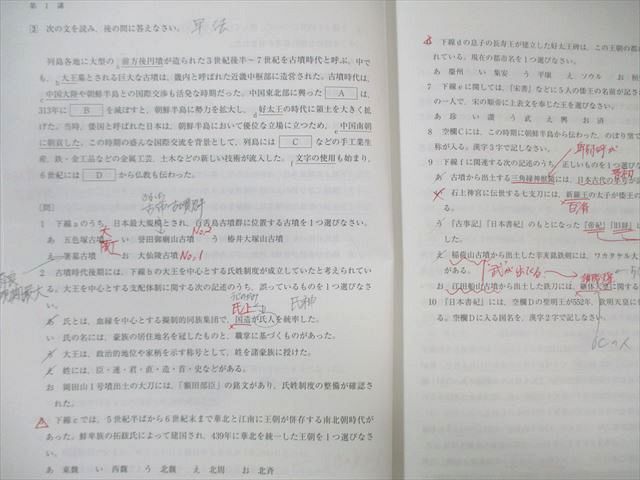 第1講
2 次の文を読み、後の問に答えなさい。 早法
列島各地に大型のa前方後円墳が造られた3世紀後半～7世紀を古墳時代と呼ぶ。中で
も、b大王墓とされる巨大な古墳は、畿内と呼ばれた近畿中枢部に造営された。古墳時代は、
c中国大陸や朝鮮半島との国際交渉も活発な時期だった。中国東北部に興った A は、
313年に B を滅ぼすと、朝鮮半島に勢力を拡大し、d好太王の時代に領土を大きく拡
げた。当時、倭国と呼ばれた日本は、朝鮮半島において優位な立場に立つため、e中国南朝
に朝貢した。この時期の盛んな国際交流を背景として、列島には C などの手工業生
産、鉄・金工品などの金属工芸、土木などの新しい技術が流入した。f文字の使用も始まり、
6世紀には D から仏教も伝わった。
[問]
1 下線aのうち、日本最大規模とされ、百舌鳥古墳群に位置する古墳を1つ選びなさい。
あ 五色塚古墳 い 誉田御廟山古墳 う 椿井大塚山古墳
No.2
え 箸墓古墳 お 大仙陵古墳 No.1
2 古墳時代後期には、下線bの大王を中心とする氏姓制度が成立していたと考えられてい
る。大王を中心とする支配体制に関する次の記述のうち、誤っているものを1つ選びなさい。
氏上 氏神
あ 氏とは、血縁を中心とする擬制的同族集団で、国造が氏人を統率した。
い 氏の名には、豪族の居住地名を冠したものと、職掌に基づくものがあった。
う 大王は、政治的地位や家柄を示す称号として、姓を諸豪族に授けた。
え 姓には、臣・連・君・直・造・首・史などがある。
お 岡田山1号墳出土の大刀には、「額田部臣」の銘文があり、氏姓制度の整備が確認さ
れた。
3 下線cでは、5世紀半ばから6世紀末まで華北と江南に王朝が併存する南北朝時代が
あった。鮮卑族の拓跋氏によって建国され、439年に華北を統一した王朝を1つ選びなさ
い。
あ 東魏 い 西魏 う 北魏 え 北周 お 北斉
下線dの息子の長寿王が建立した好太王碑は、この王朝の都
れている。現在の都市名を1つ選びなさい。
あ 慶州 い 集安 う 平壌 え ソウル お
7 下線eに関しては、『宋書』などに5人の倭王の名前が記さ
の一人で、宋の順帝に上表文を奉じた王を選びなさい。
あ 珍 い 讃 う 武 え 興 お
8 空欄Cには、この時期に朝鮮半島から伝わった、のぼり窯で
称が入る。漢字3字で記しなさい。
9 下線fに関連する次の記述のうち、正しいものを1つ選びな
あ 古墳から出土する三角縁神獣鏡には、日本古代の年号が
い 石上神宮に伝世する七支刀には、新羅王の太子が倭王の
百済
う 『古事記』『日本書紀』のもとになった『帝紀』『旧辞』
え 稲荷山古墳から出土した辛亥銘鉄剣には、ワカタケル大
がある。
「武」が出てくる
お 江田船山古墳から出土した鉄刀には、継体大王に関する
10 『日本書紀』には、空欄Dの聖明王が552年、欽明天皇に
る。空欄Dに入る国名を、漢字2字で記しなさい。